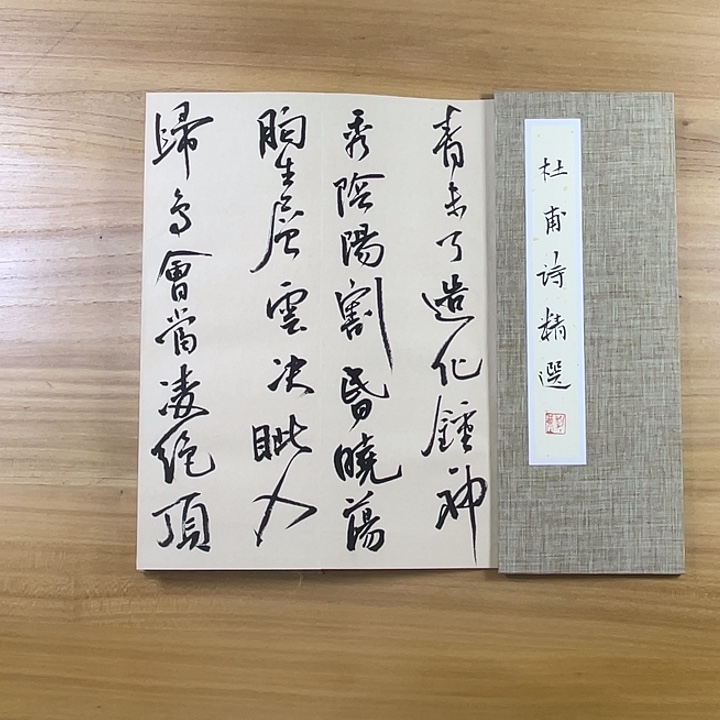 杜甫诗精選
青未了造化鍾神
秀陰陽割昬曉蕩
胸生层雲决眦入
歸鳥會當凌絕頂